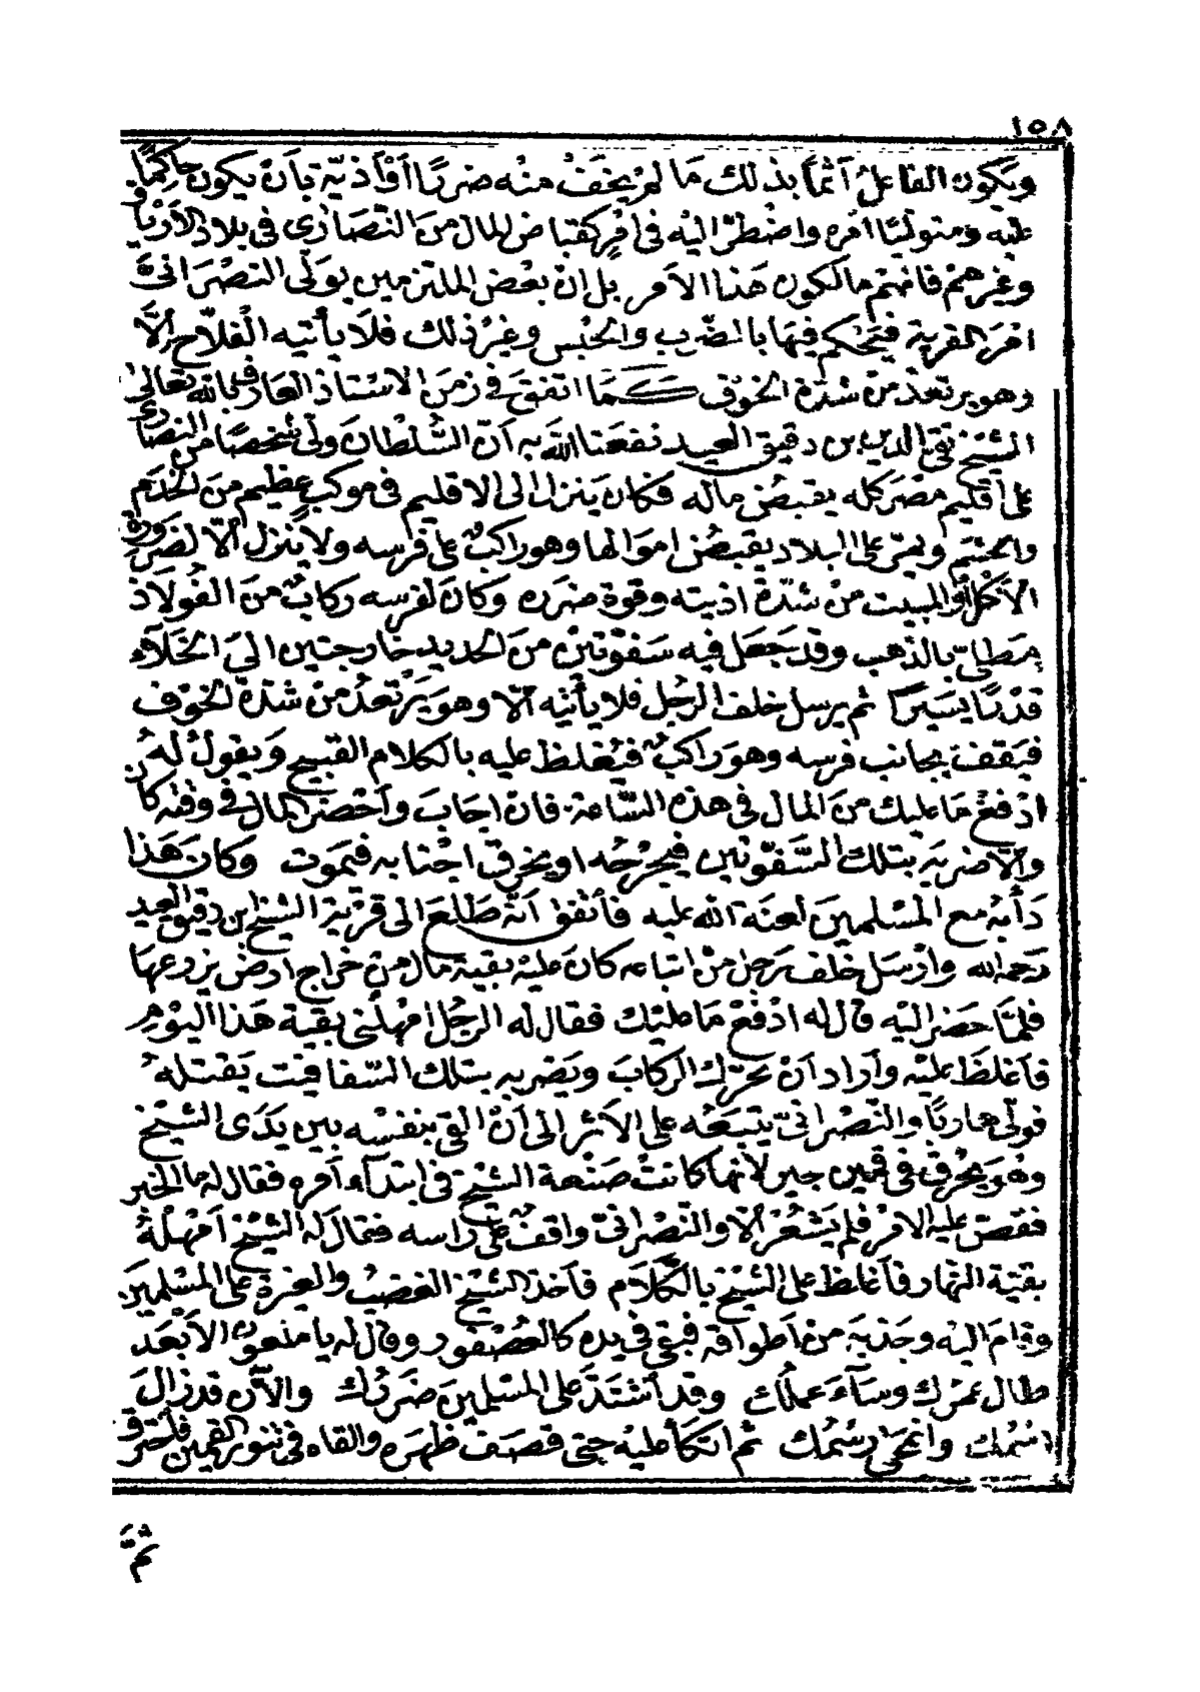 ١٥٨
ويكون الفاعل آثماً بذلك ما لم يخف منه ضرراً أو أذية بأن يكون حاكماً
عليه ومتولياً امره واضطر اليه في امر كقباض المال من النصارى في بلاد الأرياف
وغيرهم فانهم مالكون هذا الأمر بل ان بعض الملتزمين يولى النصرانيَّ
امر القرية فيتحكم فيها بالضرب والحبس وغير ذلك فلا يأتيه الفلاح إلاَّ
وهو يرتعد من شدة الخوف كما اتفق في زمن الاستاذ العارف بالله تعالى
الشيخ تقي الدين بن دقيق العيد نفعنا الله به أن السلطان ولى شخصاً من النصارى
على أقليم مصر كله يقبض ماله فكان ينزل الى الاقليم في موكب عظيم من الخدم
والحشم ويمر على البلاد يقبض اموالها وهو راكب على فرسه ولا ينزل ألا لضرورة
الأكل أو المبيت من شدة اذيته وقوة ضرره وكان لفرسه ركاب من الفولاذ
مطلي بالذهب وقد جعل فيه سفوتين من الحديد خارجتين الى الخلاء
قدراً يسيراً ثم يرسل خلف الرجل فلا يأتيه ألا وهو يرتعد من شدة الخوف
فيقف بجانب فرسه وهو راكب فيغلظ عليه بالكلام القبيح ويقول له
ادفع ما عليك من المال في هذه الساعة فان اجاب وأحضر المال في وقته كان
والا ضربه بتلك السفوتين فيجرحه او يخرق اجنابه فيموت وكان هذا
دأبه مع المسلمين لعنة الله عليه فأتفق أنه طلع الى قرية الشيخ ابن دقيق العيد
رحمه الله وارسل خلف رجل من اتباعه كان عليه بقية مال من خراج ارض يزرعها
فلما حضر اليه قال له ادفع ما عليك فقال له الرجل امهلني بقية هذا اليوم
فأغلظ عليه وأراد أن يحرك الركاب ويضربه بتلك السفافيت يقتله
فولى هارباً والنصراني يتبعه على الأثر الى أن القى بنفسه بين يدى الشيخ
وهو يحرق في قمين جير لأنها كانت صنعة الشيخ في ابتدآء أمره فقال له ما الخبر
فقص عليه الامر فلم يشعر ألا والنصراني واقف على راسه فقال له الشيخ أمهله
بقية النهار فأغلظ على الشيخ بالكلام فأخذ الشيخ الغضب والغيرة على المسلمين
وقام اليه وجذبه من أطواقه فبقى في يده كالعصفور وقال له يا ملعون الأبعد
طال عمرك وسآء عملك وقد أشتد على المسلمين ضررك والآن قد زال
اسمك وانمحى رسمك ثم اتكأ عليه حتى قصف ظهره والقاه في تنور القمين فأحترق
ثمَّ